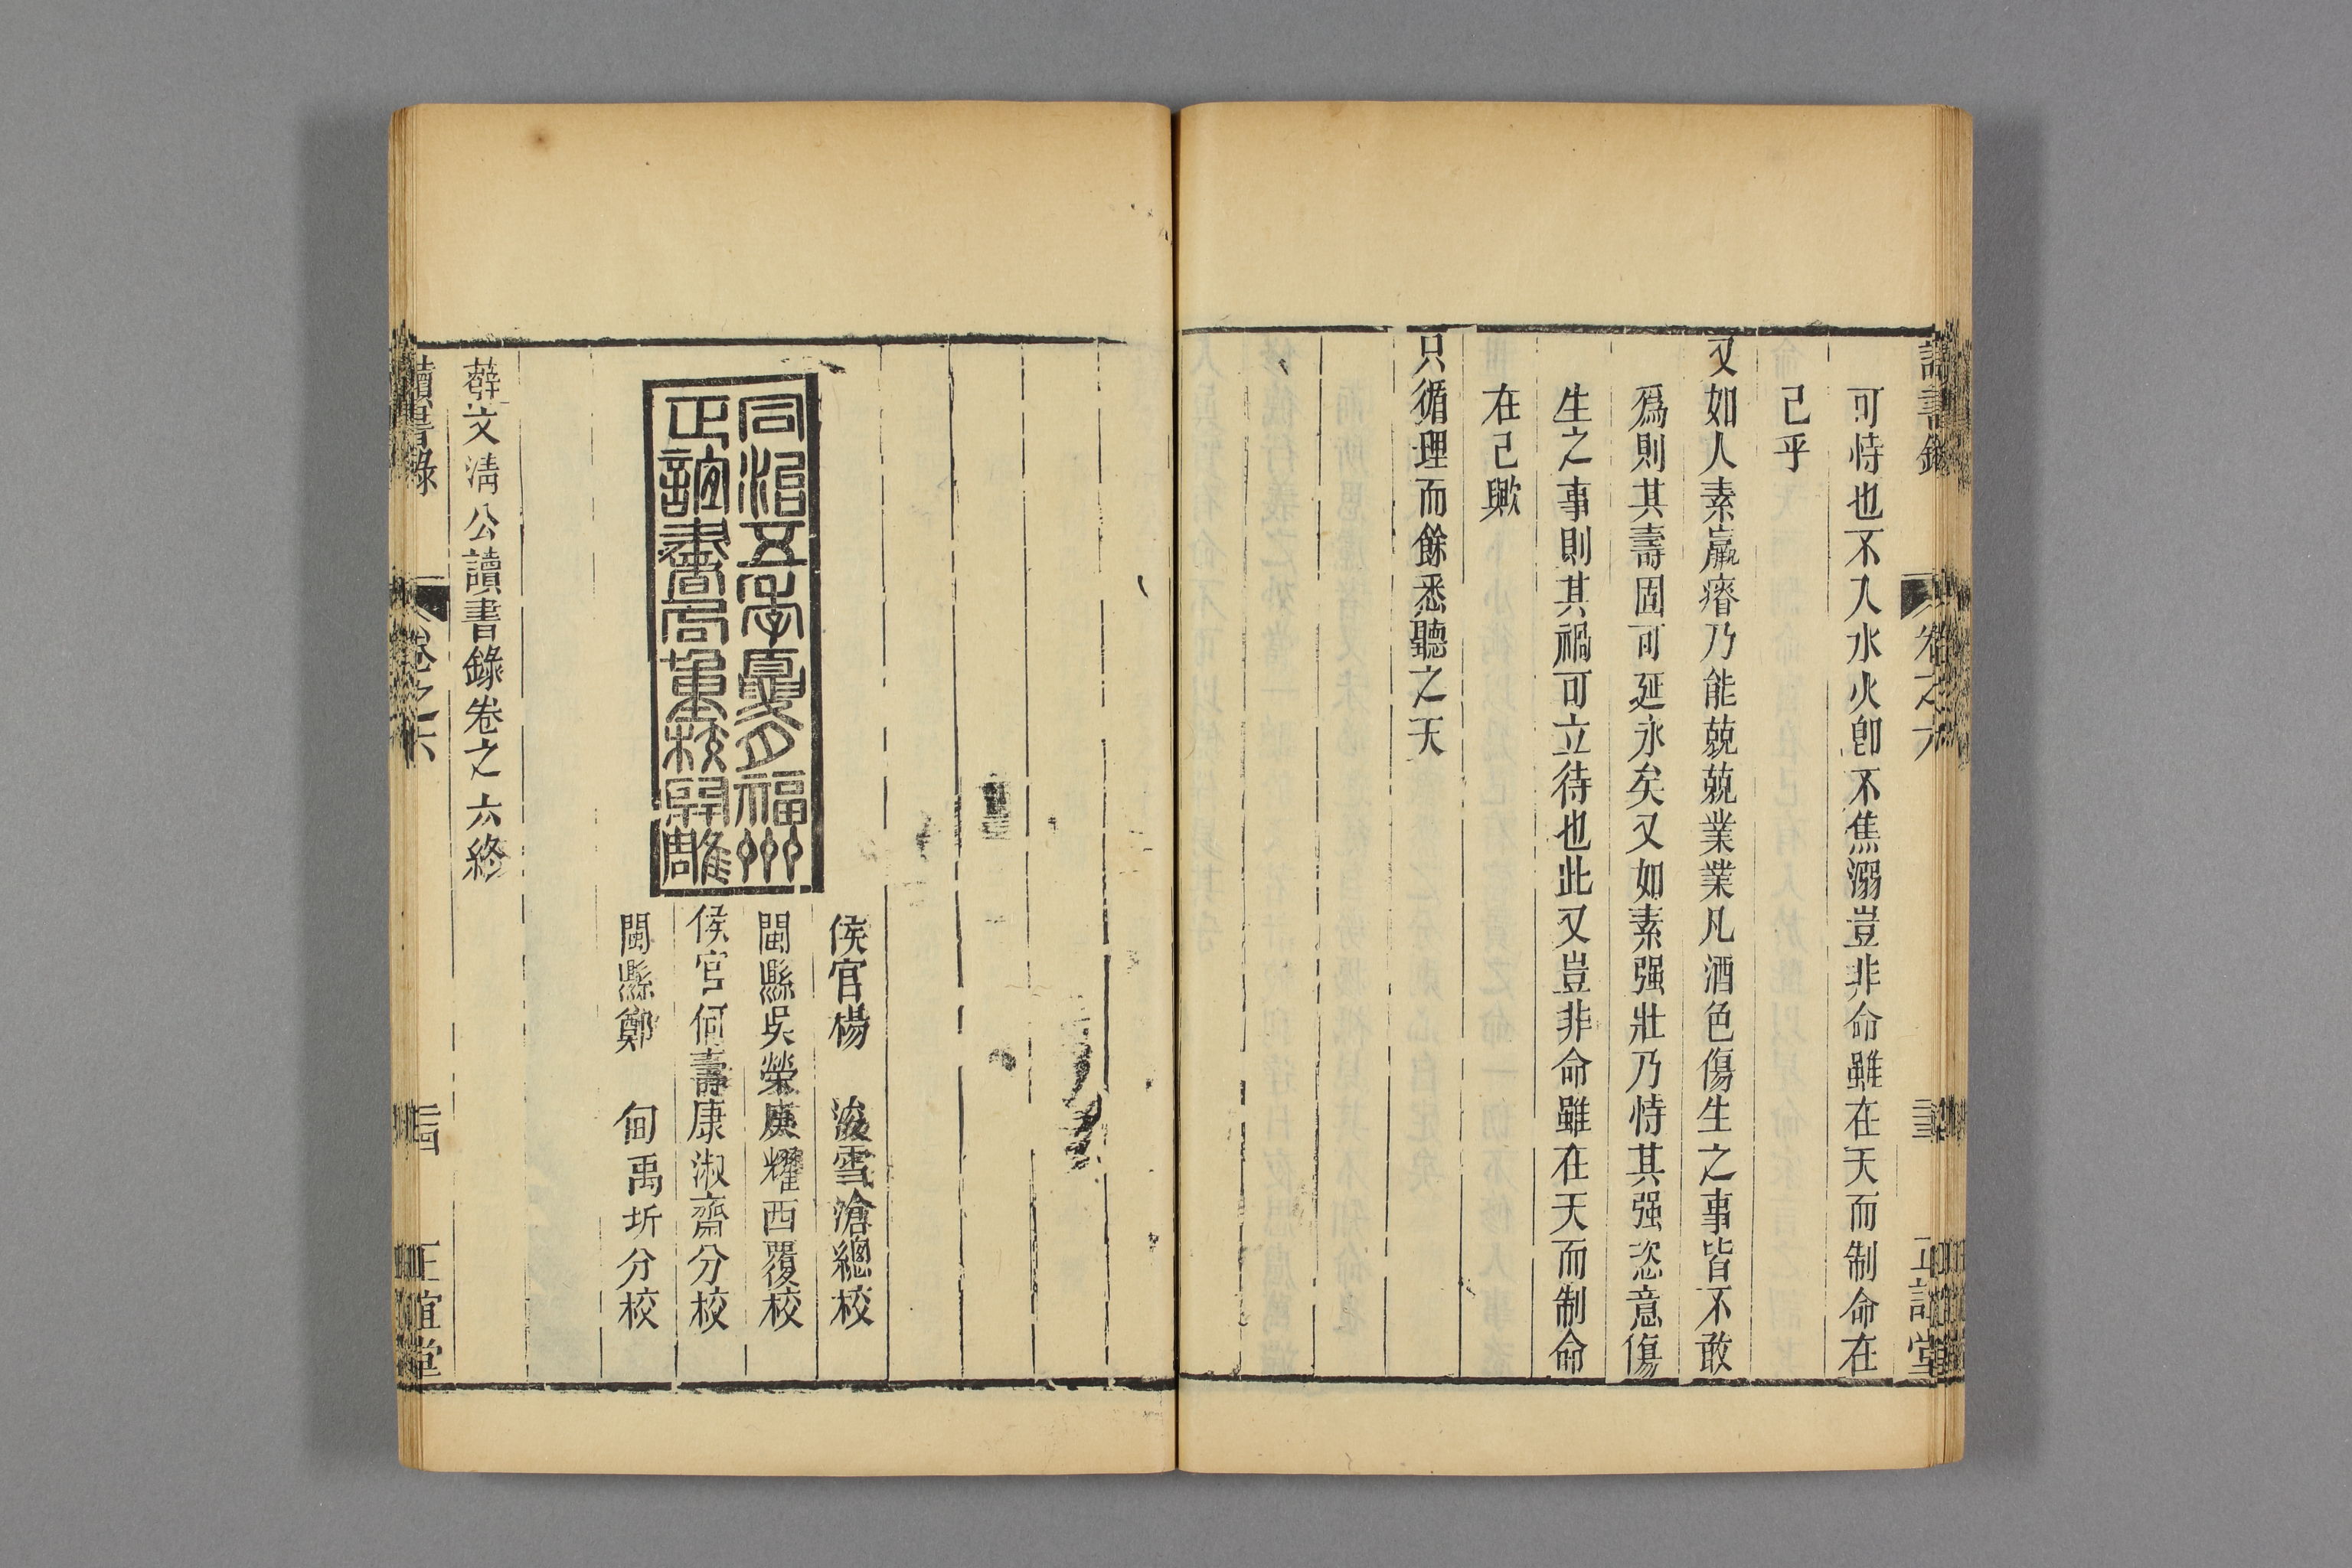 讀書錄 卷之六 正誼堂
可恃也不入水火卽不焦溺豈非命雖在天而制命在
己乎
又如人素羸瘠乃能兢兢業業凡酒色傷生之事皆不敢
爲則其壽固可延永矣又如素强壯乃恃其强恣意傷
生之事則其禍可立待也此又豈非命雖在天而制命
在己歟
只循理而餘悉聽之天
同治五年夏月福州
正誼書局重校開雕
侯官楊 浚雪滄總校
閩縣吳榮庚耀西覆校
侯官何壽康淑齋分校
閩縣鄭 甸禹圻分校
薛文淸公讀書錄卷之六終
讀書錄 卷之六 正誼堂